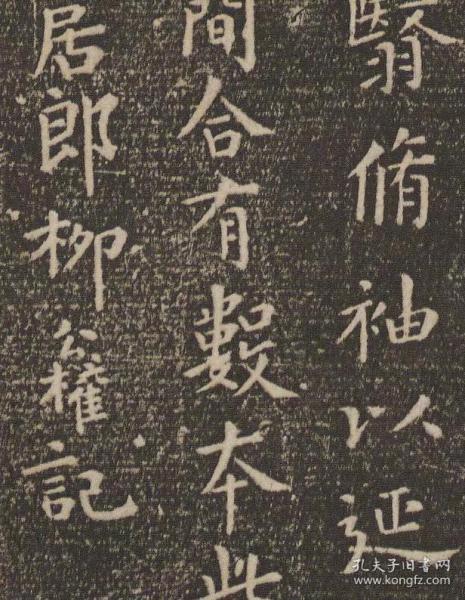 翳脩袖以延
間合有數本此
居郎柳公權記
孔夫子旧书网
www.kongfz.com